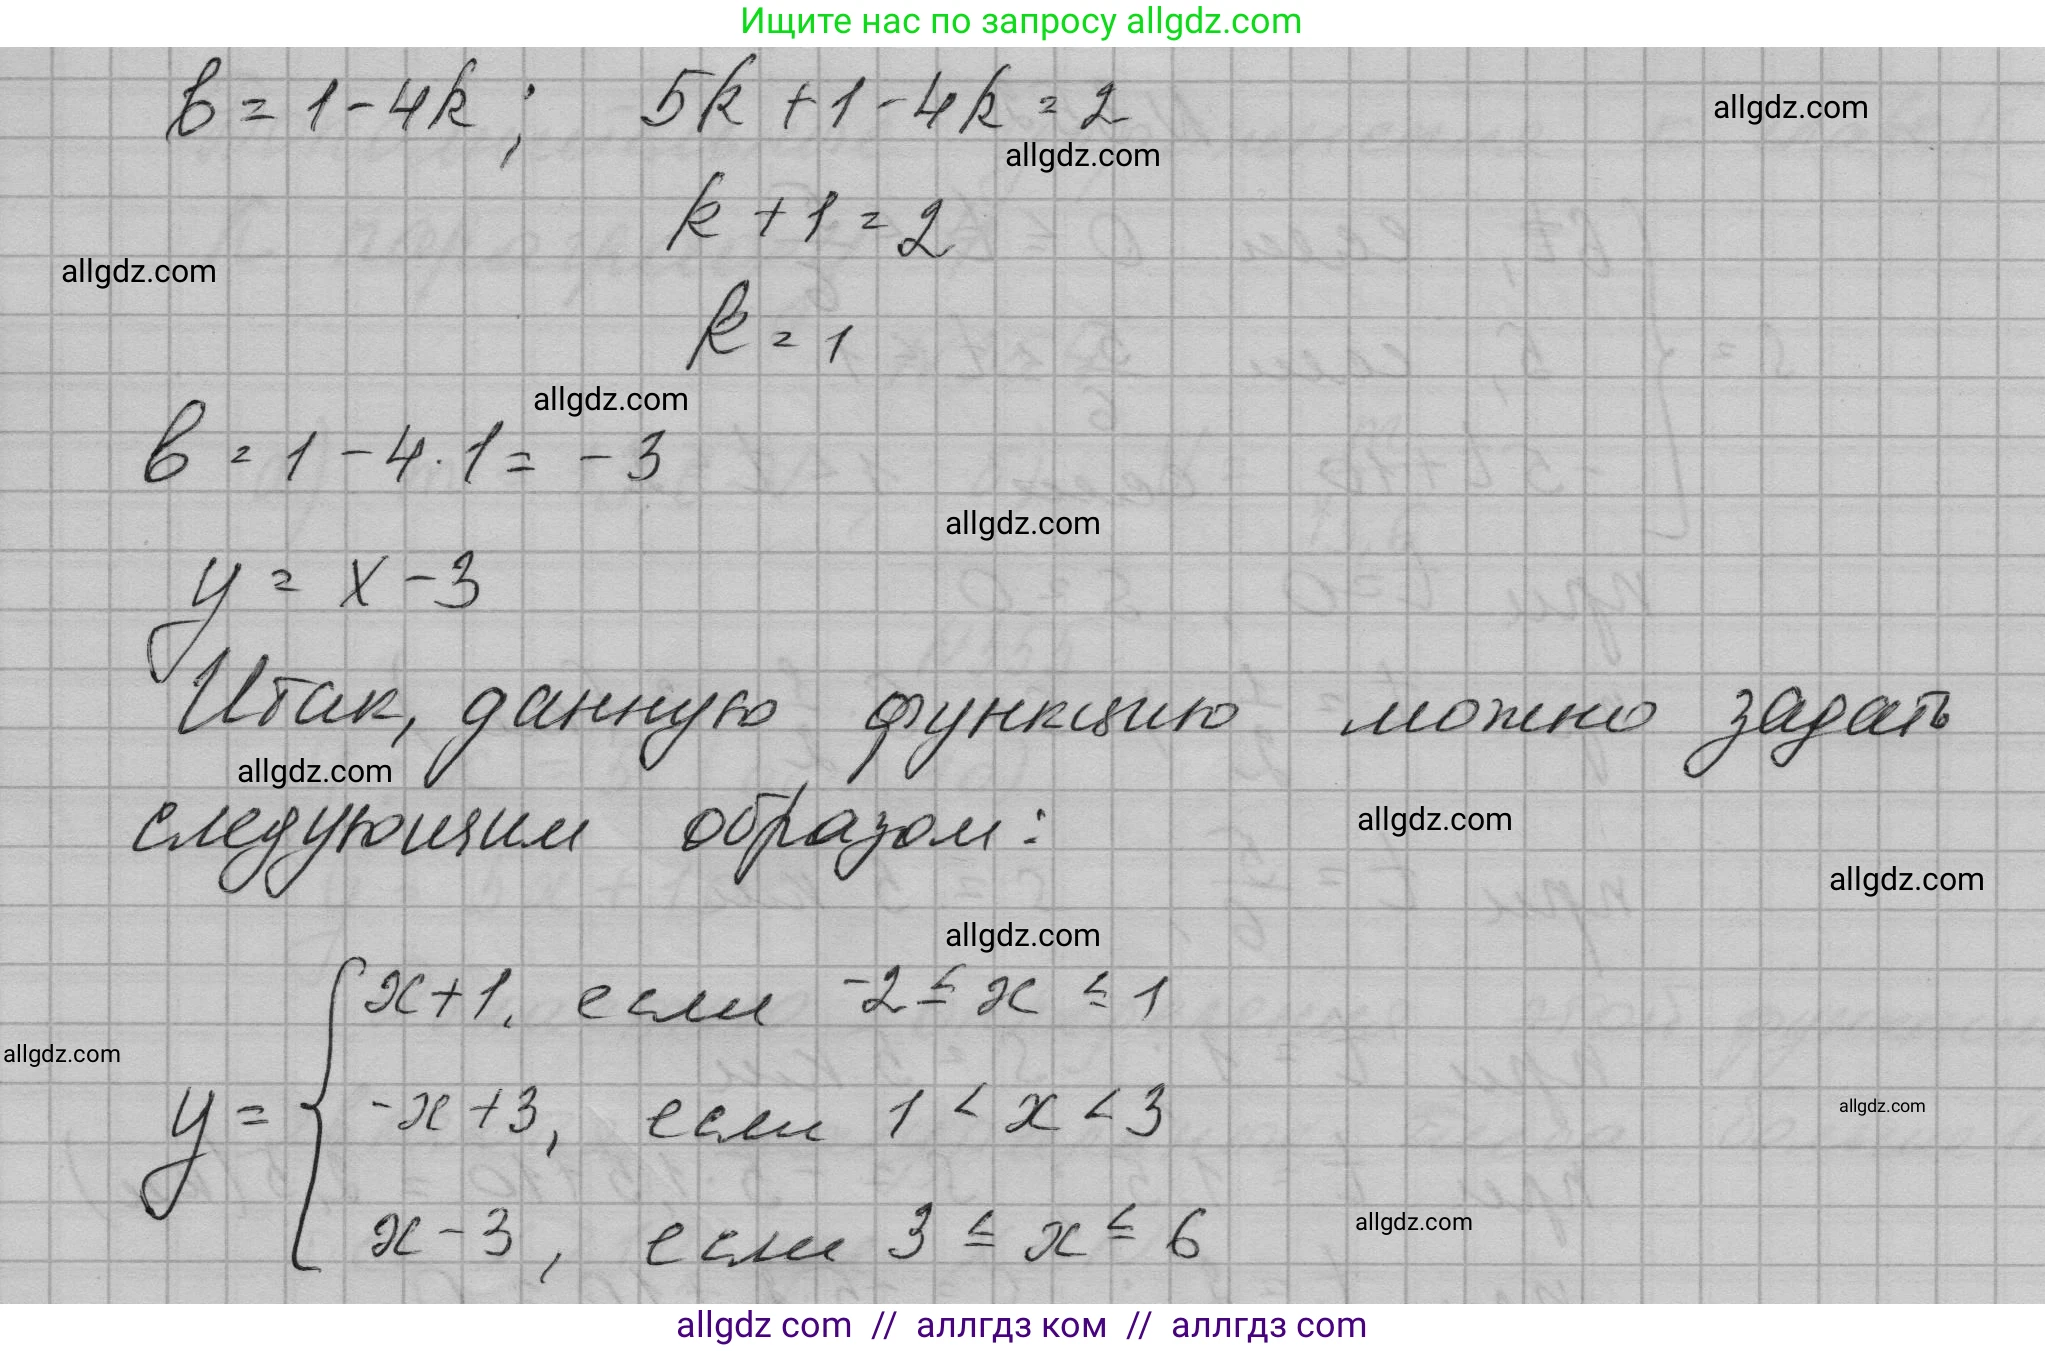 Ищите нас по запросу allgdz.com
в = 1 - 4k ; 5k + 1 - 4k = 2
allgdz.com
allgdz.com
k + 1 = 2
allgdz.com
k = 1
allgdz.com
в = 1 - 4 · 1 = - 3
allgdz.com
y = x - 3
Итак, данную функцию можно задать
allgdz.com
следующим образом:
allgdz.com
allgdz.com
allgdz.com
x + 1, если -2 ≤ x ≤ 1
allgdz.com
y = { -x + 3, если 1 < x < 3
allgdz.com
x - 3, если 3 ≤ x ≤ 6
allgdz.com
allgdz com // аллгдз ком // аллгдз com